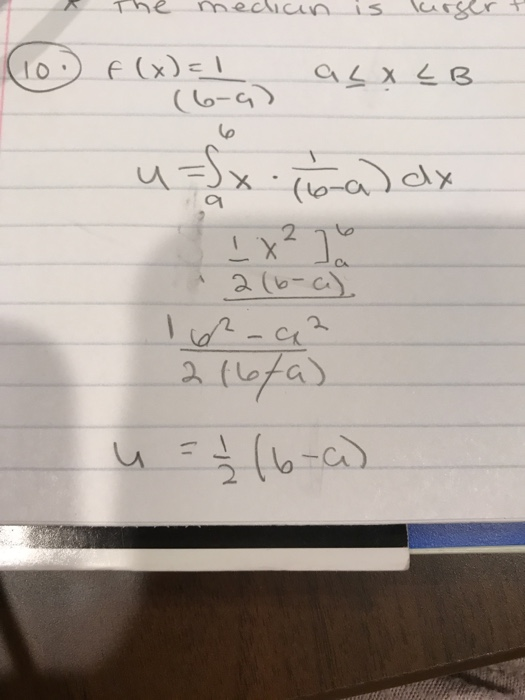 * The median is larger
10. f(x) = 1/(b-a) a ≤ x ≤ B
u = ∫_a^b x · 1/(b-a) dx
1/2(b-a) x² ]_a^b
1 b² - a² / 2(b-a)
u = 1/2 (b-a)